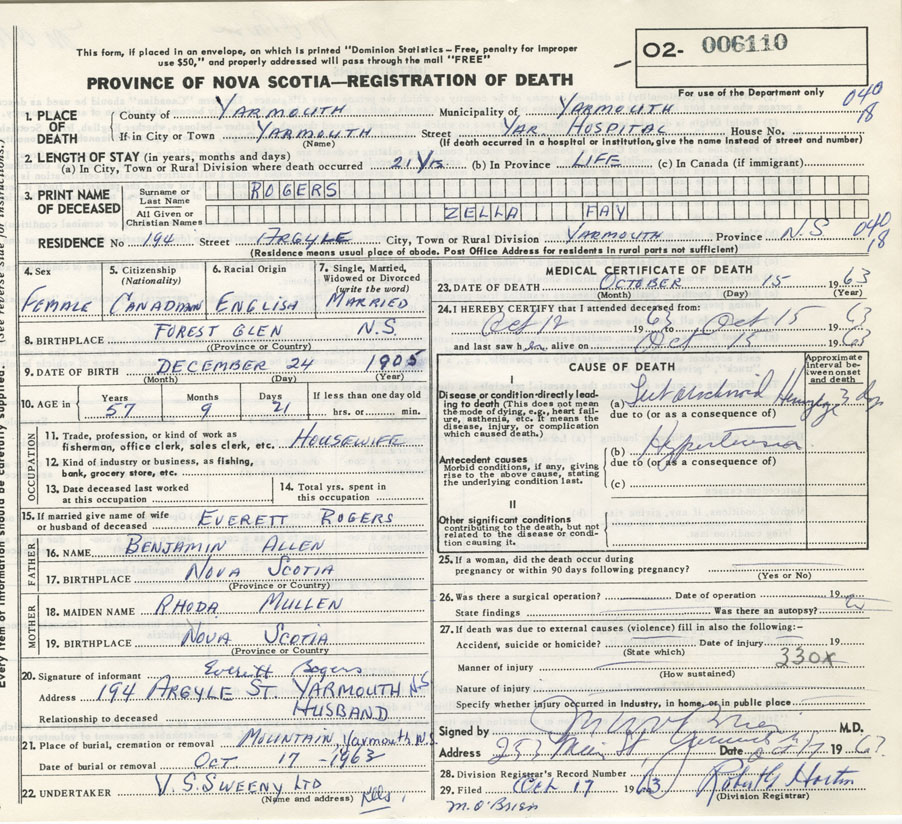 This form, if placed in an envelope, on which is printed "Dominion Statistics – Free, penalty for improper
use $50," and properly addressed will pass through the mail "FREE"
PROVINCE OF NOVA SCOTIA—REGISTRATION OF DEATH
O2- 006110
For use of the Department only
040
18
1. PLACE OF DEATH
County of YARMOUTH Municipality of YARMOUTH
If in City or Town YARMOUTH Street YAR HOSPITAL House No.
(Name) (If death occurred in a hospital or institution, give the name instead of street and number)
2. LENGTH OF STAY (in years, months and days)
(a) In City, Town or Rural Division where death occurred 21 Yrs (b) In Province LIFE (c) In Canada (if immigrant)
3. PRINT NAME OF DECEASED
Surname or Last Name ROGERS
All Given or Christian Names ZELLA FAY
RESIDENCE No 194 Street ARGYLE City, Town or Rural Division YARMOUTH Province N.S
040
18
(Residence means usual place of abode. Post Office Address for residents in rural parts not sufficient)
4. Sex
FEMALE
5. Citizenship
(Nationality)
CANADIAN
6. Racial Origin
ENGLISH
7. Single, Married, Widowed or Divorced
(write the word)
MARRIED
8. BIRTHPLACE FOREST GLEN N.S.
(Province or Country)
9. DATE OF BIRTH DECEMBER 24 1905
(Month) (Day) (Year)
10. AGE in
Years Months Days If less than one day old
57 9 21 hrs. or min.
OCCUPATION
11. Trade, profession, or kind of work as
fisherman, office clerk, sales clerk, etc. HOUSEWIFE
12. Kind of industry or business, as fishing,
bank, grocery store, etc.
13. Date deceased last worked
at this occupation
14. Total yrs. spent in
this occupation
15. If married give name of wife
or husband of deceased EVERETT ROGERS
FATHER
16. NAME BENJAMIN ALLEN
17. BIRTHPLACE NOVA SCOTIA
(Province or Country)
MOTHER
18. MAIDEN NAME RHODA MULLEN
19. BIRTHPLACE NOVA SCOTIA
(Province or Country
20. Signature of informant Everett Rogers
Address 194 ARGYLE ST. YARMOUTH N-S
Relationship to deceased HUSBAND
21. Place of burial, cremation or removal MOUNTAIN, Yarmouth NS
Date of burial or removal OCT 17 -1963
22. UNDERTAKER V.S. SWEENY LTD
(Name and address)
MEDICAL CERTIFICATE OF DEATH
23. DATE OF DEATH OCTOBER 15 1963
(Month) (Day) (Year)
24. I HEREBY CERTIFY that I attended deceased from:
Oct 12 1963 to Oct 15 63
and last saw h alive on Oct 15 1963
CAUSE OF DEATH
Approximate Interval between onset and death
I
Disease or condition directly leading to death (This does not mean the mode of dying, e.g., heart failure, asthenia, etc. It means the disease, injury, or complication which caused death.)
(a) Subarachnoid Hemorrhage 3 days
due to (or as a consequence of)
Antecedent causes
Morbid conditions, if any, giving rise to the above cause, stating the underlying condition last.
(b) Hypertension
due to (or as a consequence of)
(c)
II
Other significant conditions
contributing to the death, but not related to the disease or condition causing it.
25. If a woman, did the death occur during
pregnancy or within 90 days following pregnancy?
(Yes or No)
26. Was there a surgical operation? Date of operation 19
State findings Was there an autopsy?
27. If death was due to external causes (violence) fill in also the following:–
Accident, suicide or homicide? Date of injury 19
(State which)
330X
Manner of injury
(How sustained)
Nature of injury
Specify whether injury occurred in Industry, in home, or in public place
Signed by M.D.
Address 253 Main St Yarmouth Date Oct 17 1963
28. Division Registrar's Record Number
29. Filed Oct 17 1963 Robert G Horton
(Division Registrar)
M. O'Brien
Every item of information should be carefully supplied. (See reverse side for instructions.)